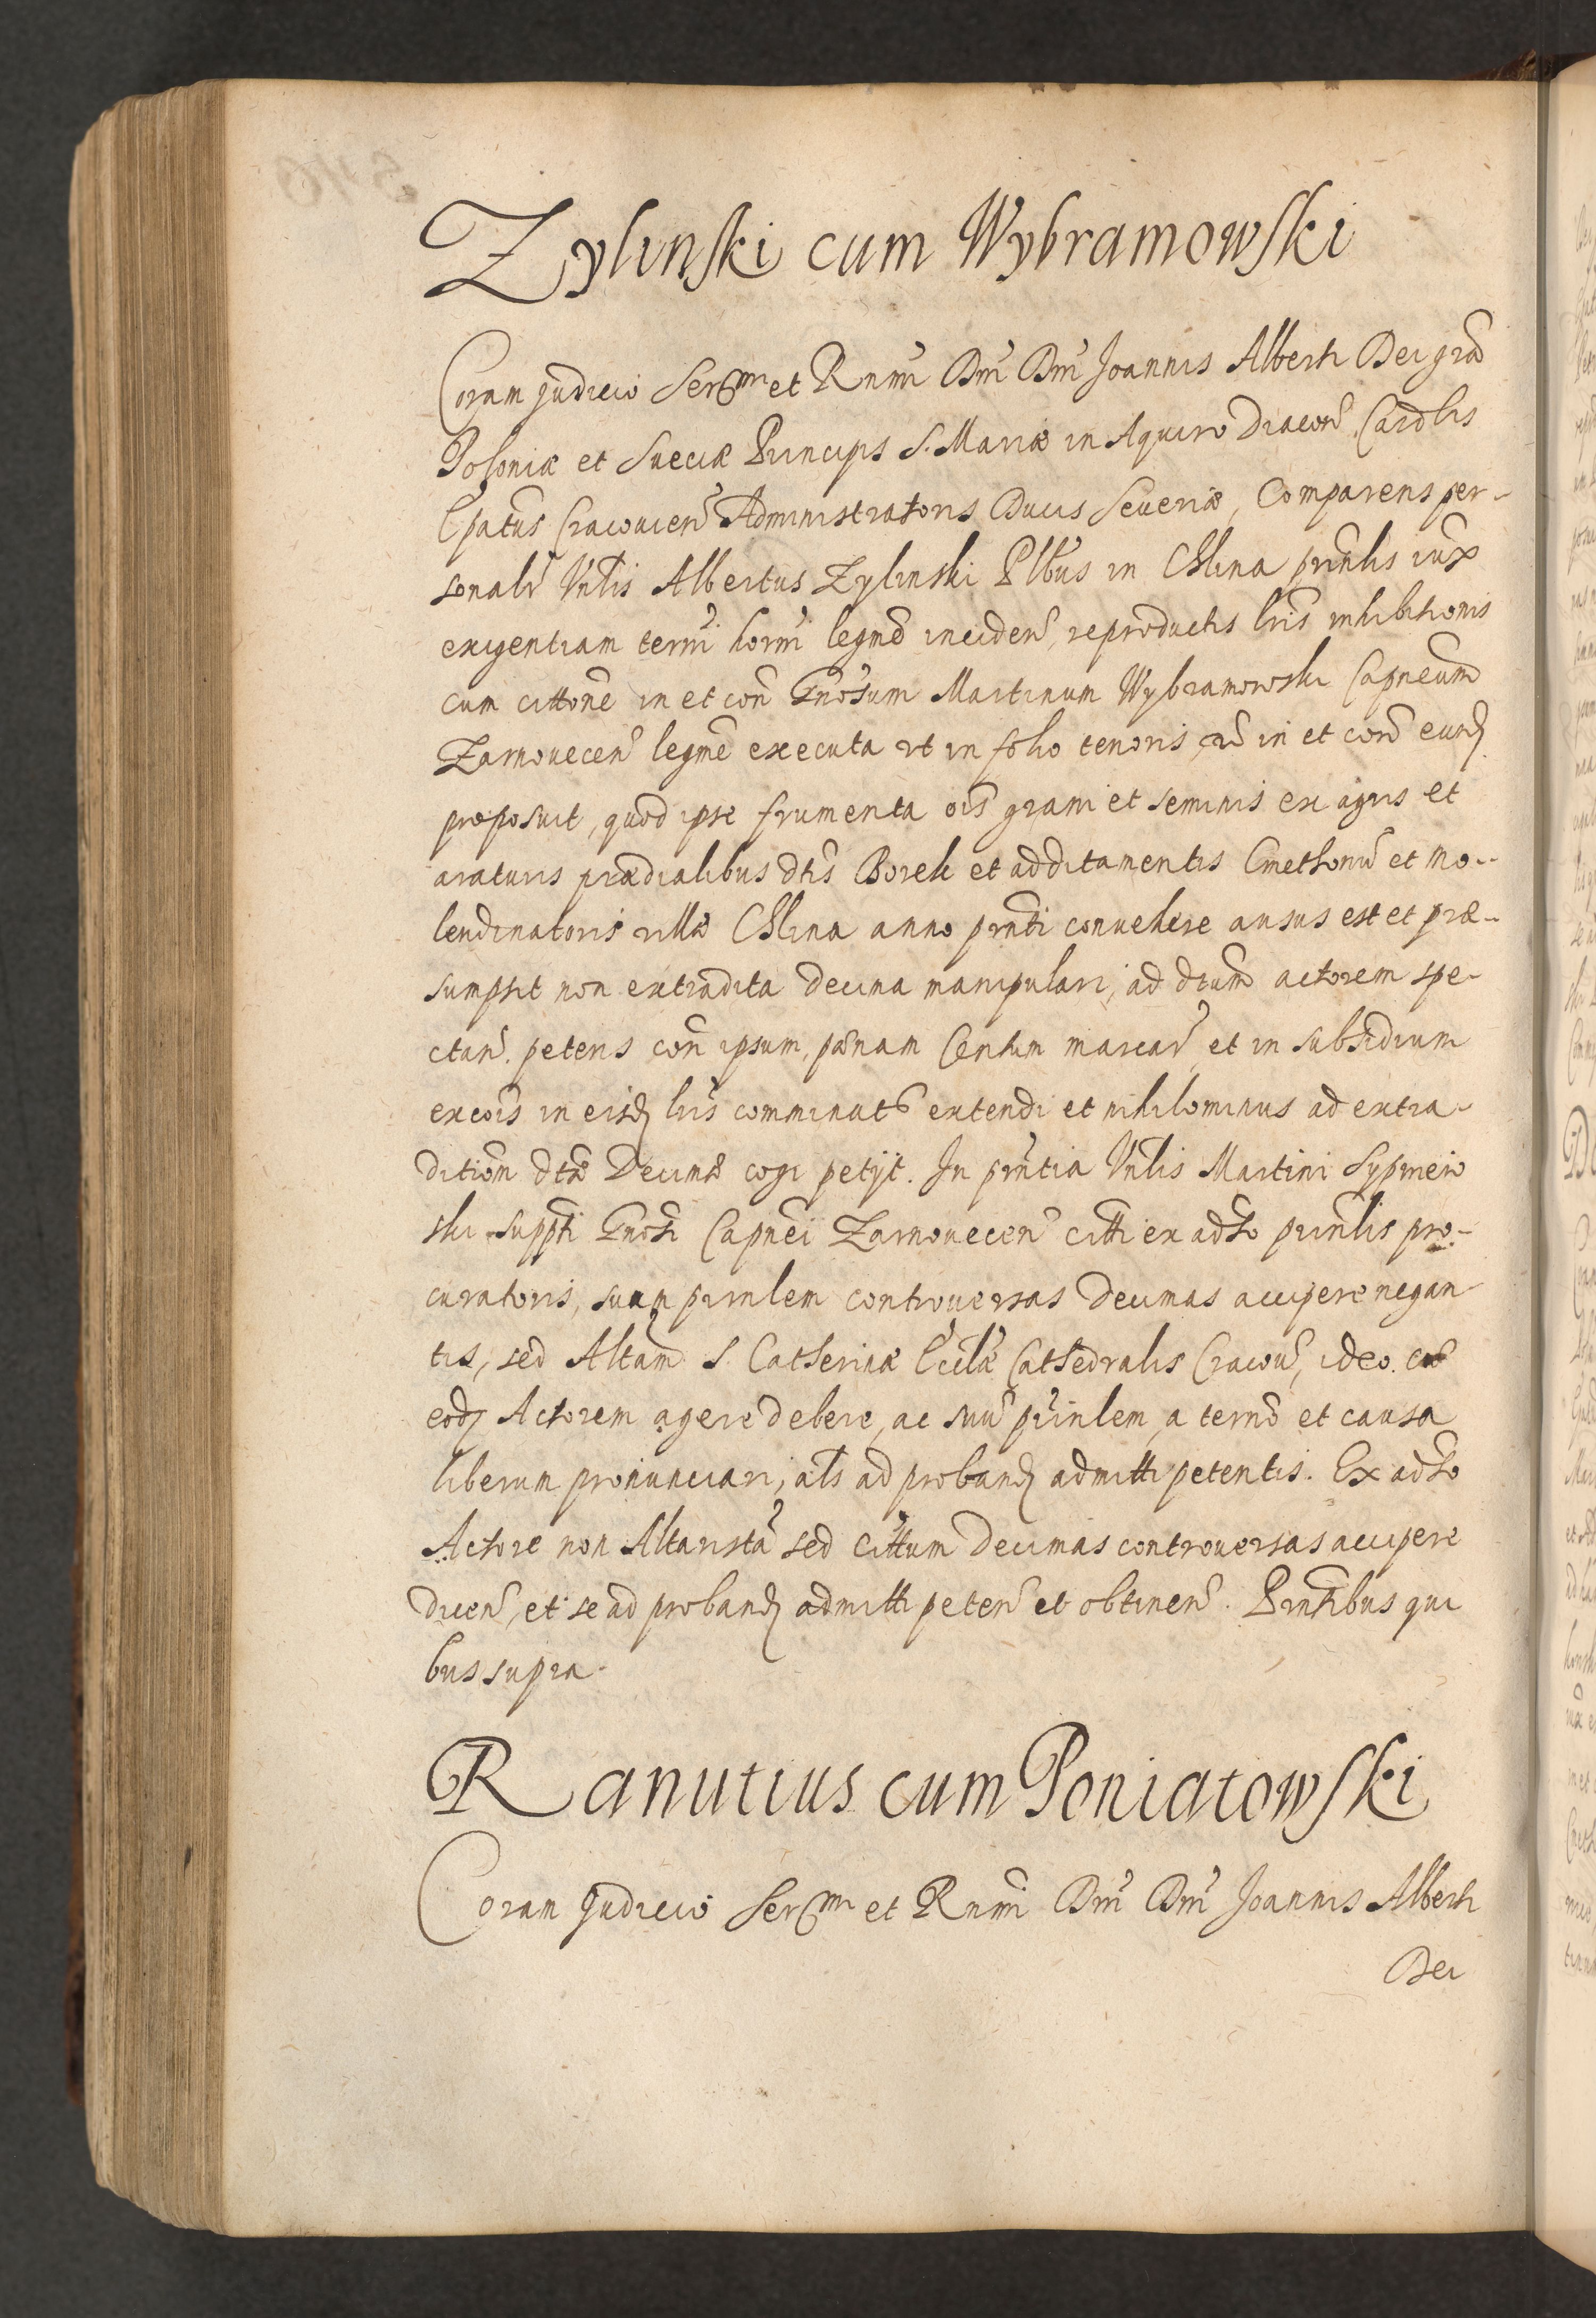 Zylinski cum Wybramowski
Coram Judicio Sermi et Rnmi Dni Dni Joannis Alberti Dei gra
Poloniæ et Sueciæ Principis S. Mariæ in Aquiro Diacon Cardlis
Epatus Cracovien Administratoris Ducis Severiæ, Comparens per-
sonalr Vnlis Albertus Zylinski Plbus in Chlina prinlis iux
exigentiam termi horni legme inciden, reproductis lris inhibitionis
cum cittone in et con Gnosum Martinum Wybramowski Capneum
Zarnovecen legme executa ut in folio tenoris, in et con eund
proposuit, quod ipse frumenta ois grani et seminis ex agris et
araturis prædialibus dtis Borek et additamentis Cmethonu et mo-
lendinatoris villæ Chlina anno prnti convehere ausus est et præ-
sumpsit non extradita decima manipulari, ad dtum actorem spe-
ctan. petens con ipsum, pænam Centum marcar et in subsidium
excois in eisd lris comminat extendi et nihilominus ad extra-
dition dtæ Decimæ cogi petijt. In prntia Vnlis Martini Sypniew
ski suppti Gnosi Capnei Zarnovecen citti ex adso prinlis pro-
curatoris, suum prinlem controversas decimas accipere negan-
tis, sed Altam S. Catherinæ Eccliæ Cathedralis Cracov, ideo cum
eod Actorem agere debere, ac suu prinlem a termo et causa
liberum pronunciari, als ad proband admitti petentis. Ex adso
Actore non Altaristã sed cittum decimas controversas accipere
dicen, et se ad proband admitti peten et obtinen. Prntibus qui
bus supra.
Ranutius cum Poniatowski
Coram Judicio Sermi et Rnmi Dni Dni Joannis Alberti
Dei